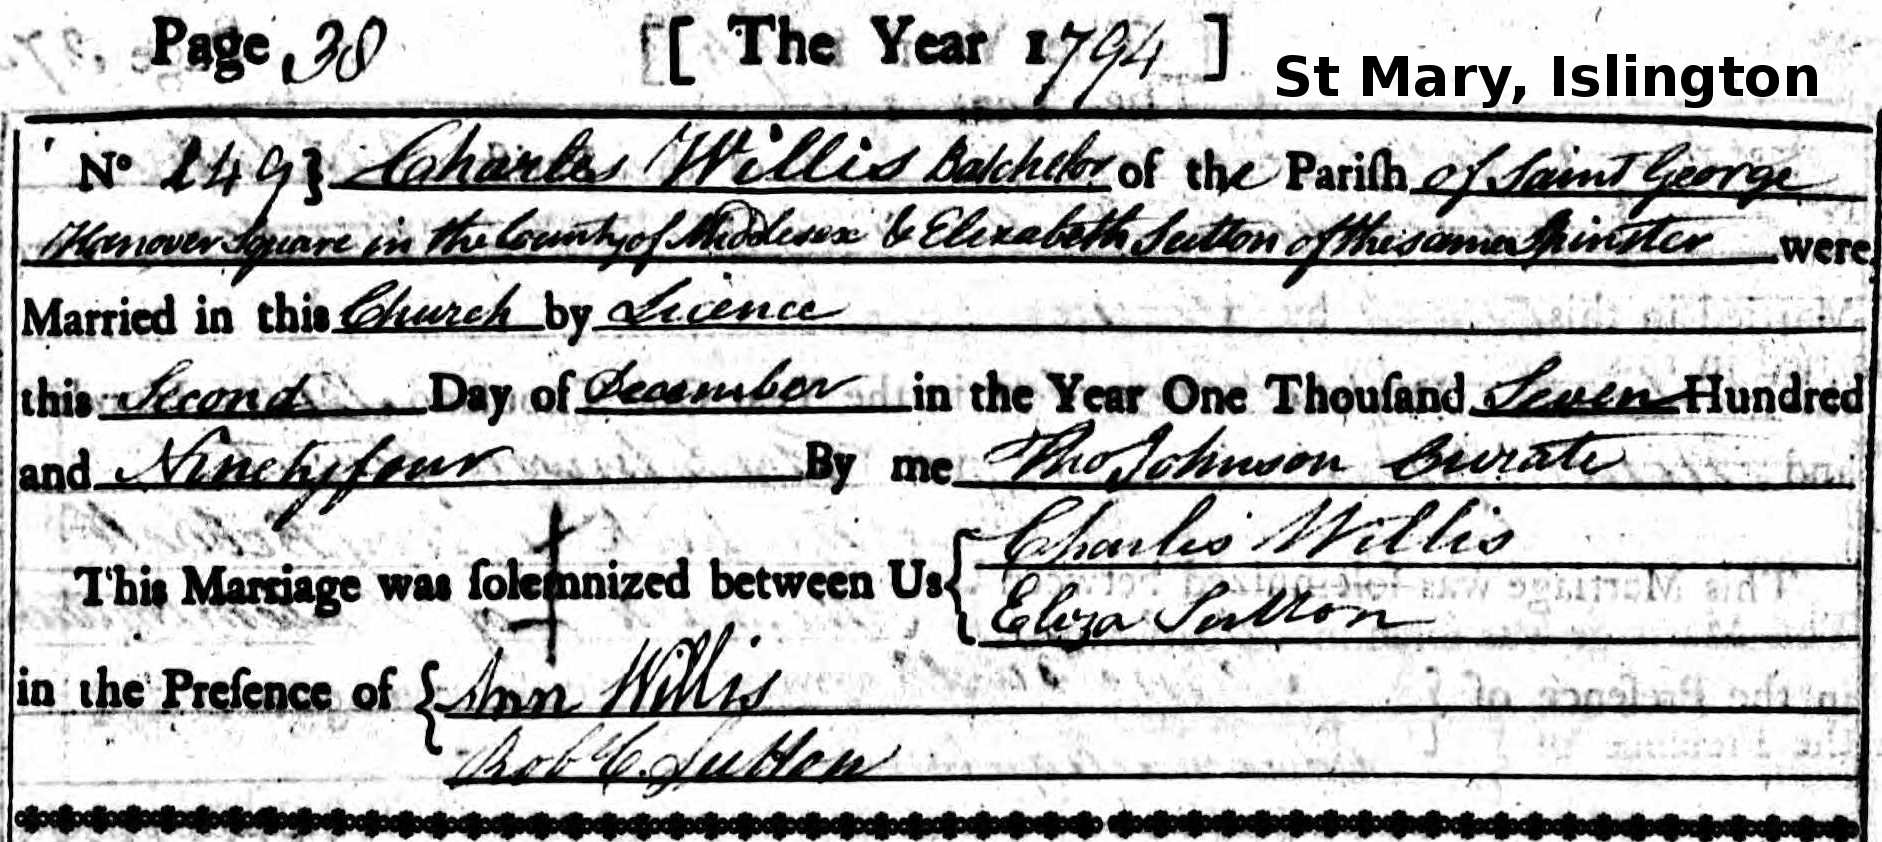 Page 38 [ The Year 1794 ] St Mary, Islington
No 249} Charles Willis Batchelor of the Pariſh of Saint George
Hanover Square in the County of Middlesex & Elizabeth Sutton of the same Spinster were
Married in this Church by Licence
this Second Day of December in the Year One Thouſand Seven Hundred
and Ninety four By me Tho Johnson Curate
This Marriage was ſolemnized between Us { Charles Willis
Eliza Sutton
in the Preſence of { Ann Willis
Robt C. Sutton